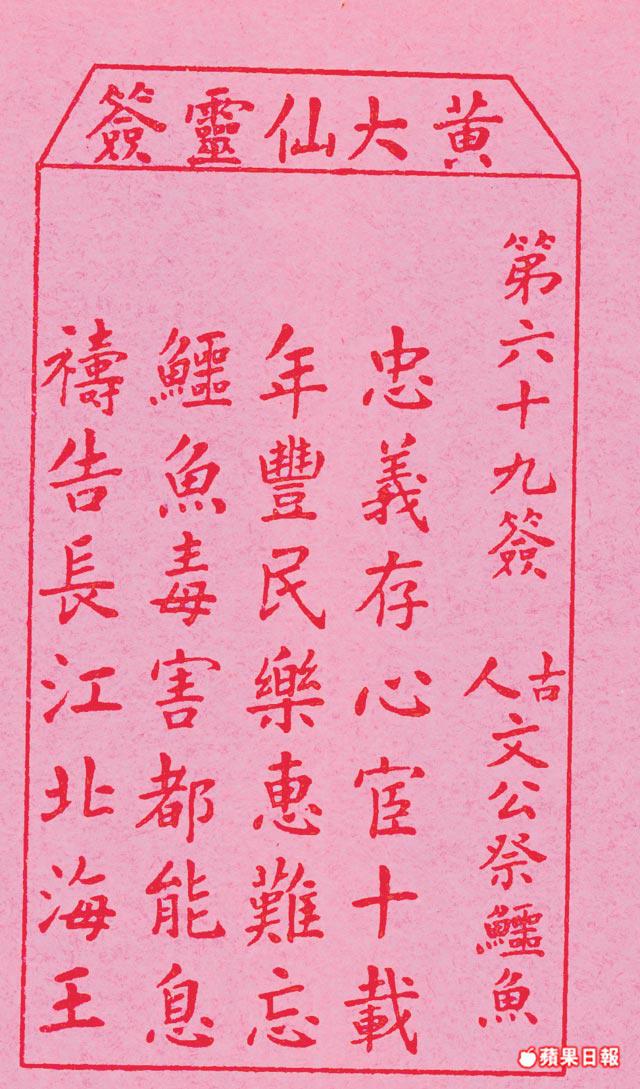 黃大仙靈簽
第六十九簽
古人
文公祭鱷魚
忠義存心宦十載
年豐民樂惠難忘
鱷魚毒害都能息
禱告長江北海王
蘋果日報